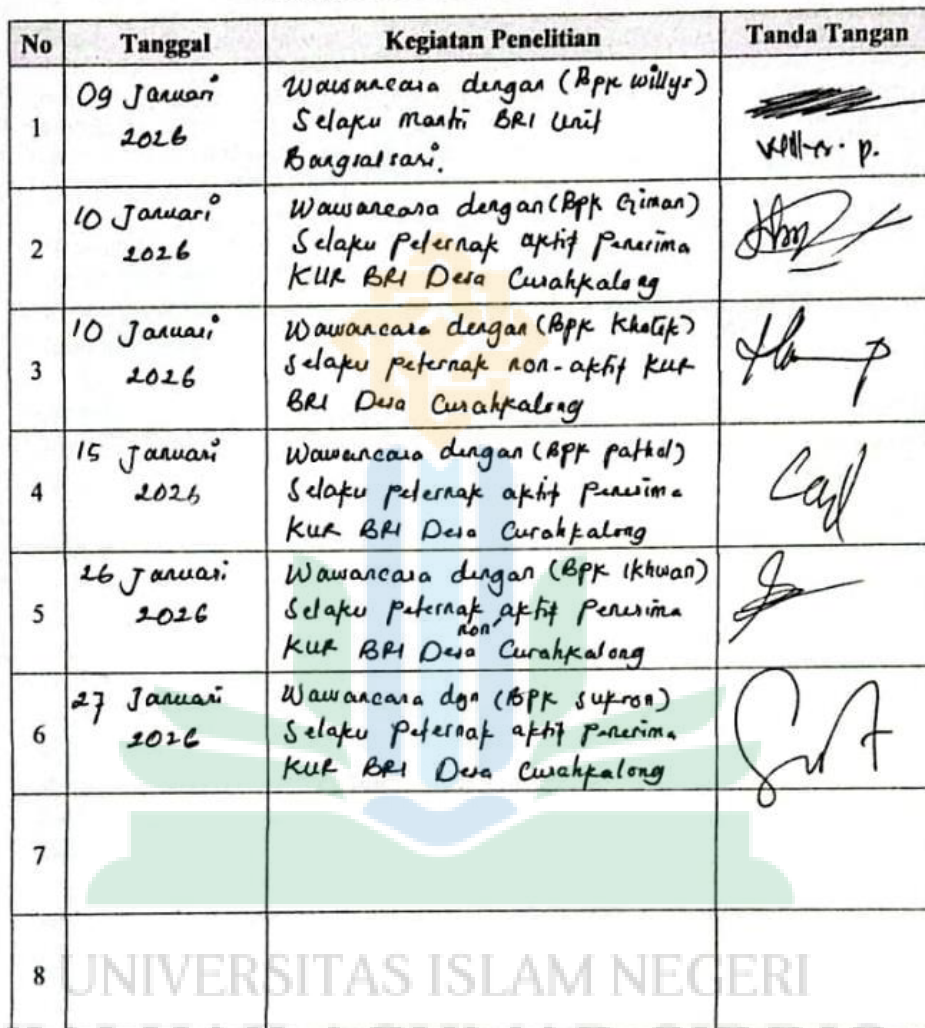 No Tanggal Kegiatan Penelitian Tanda Tangan
1 09 Januari 2026 Wawancara dengan (Bpk Willys)
Selaku Mantri BRI Unit
Bangsalsari.
Willys. p.
2 10 Januari 2026 Wawancara dengan (Bpk Giman)
Selaku Peternak aktif Penerima
KUR BRI Desa Curahkalong
3 10 Januari 2026 Wawancara dengan (Bpk Khotik)
Selaku peternak non-aktif KUR
BRI Desa Curahkalong
4 15 Januari 2026 Wawancara dengan (Bpk pathol)
Selaku peternak aktif Penerima
KUR BRI Desa Curahkalong
5 26 Januari 2026 Wawancara dengan (BPK Ikhwan)
Selaku peternak non aktif Penerima
KUR BRI Desa Curahkalong
6 27 Januari 2026 Wawancara dgn (BPK Sukron)
Selaku Peternak aktif Penerima
KUR BRI Desa Curahkalong
7
8
UNIVERSITAS ISLAM NEGERI